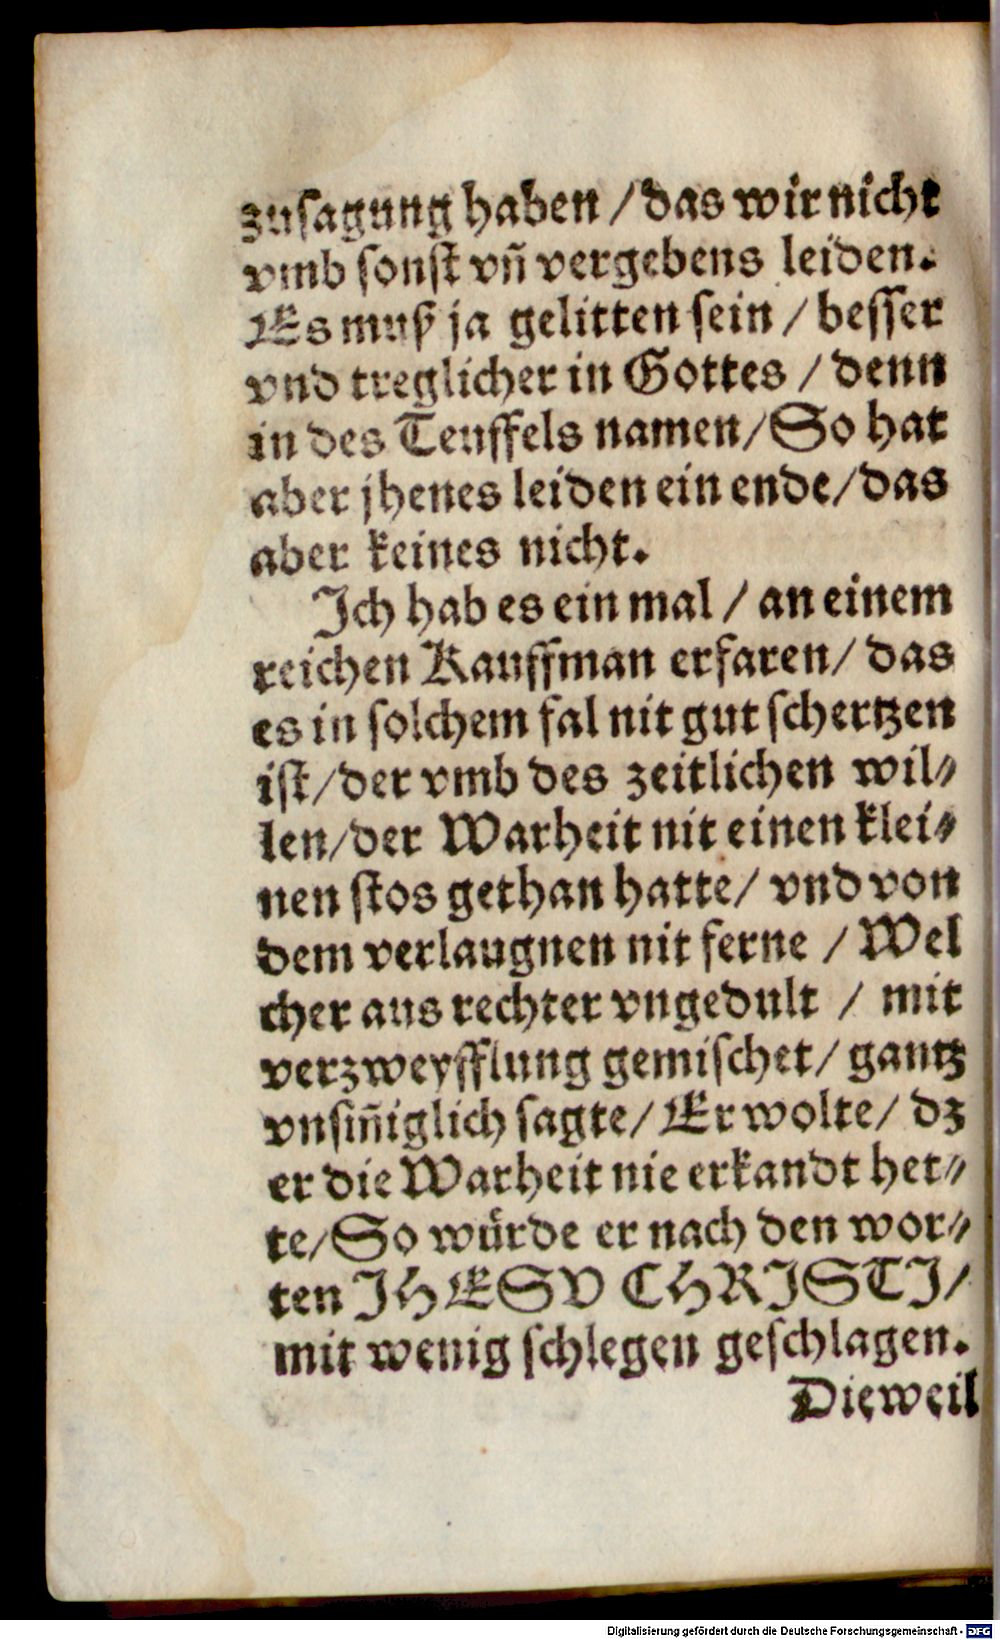 zusagung haben / das wir nicht
vmb sonst vn̄ vergebens leiden.
Es muß ja gelitten sein / besser
vnd treglicher in Gottes / denn
in des Teuffels namen / So hat
aber jhenes leiden ein ende / das
aber keines nicht.
Ich hab es ein mal / an einem
reichen Kauffman erfaren / das
es in solchem fal nit gut schertzen
ist / der vmb des zeitlichen wil⸗
len / der Warheit nit einen klei⸗
nen stos gethan hatte / vnd von
dem verlaugnen nit ferne / Wel
cher aus rechter vngedult / mit
verzweyfflung gemischet / gantz
vnsin̄iglich sagte / Er wolte / dz
er die Warheit nie erkandt het⸗
te / So würde er nach den wor⸗
ten JHESV CHRISTI /
mit wenig schlegen geschlagen.
Dieweil
Digitalisierung gefördert durch die Deutsche Forschungsgemeinschaft - DFG